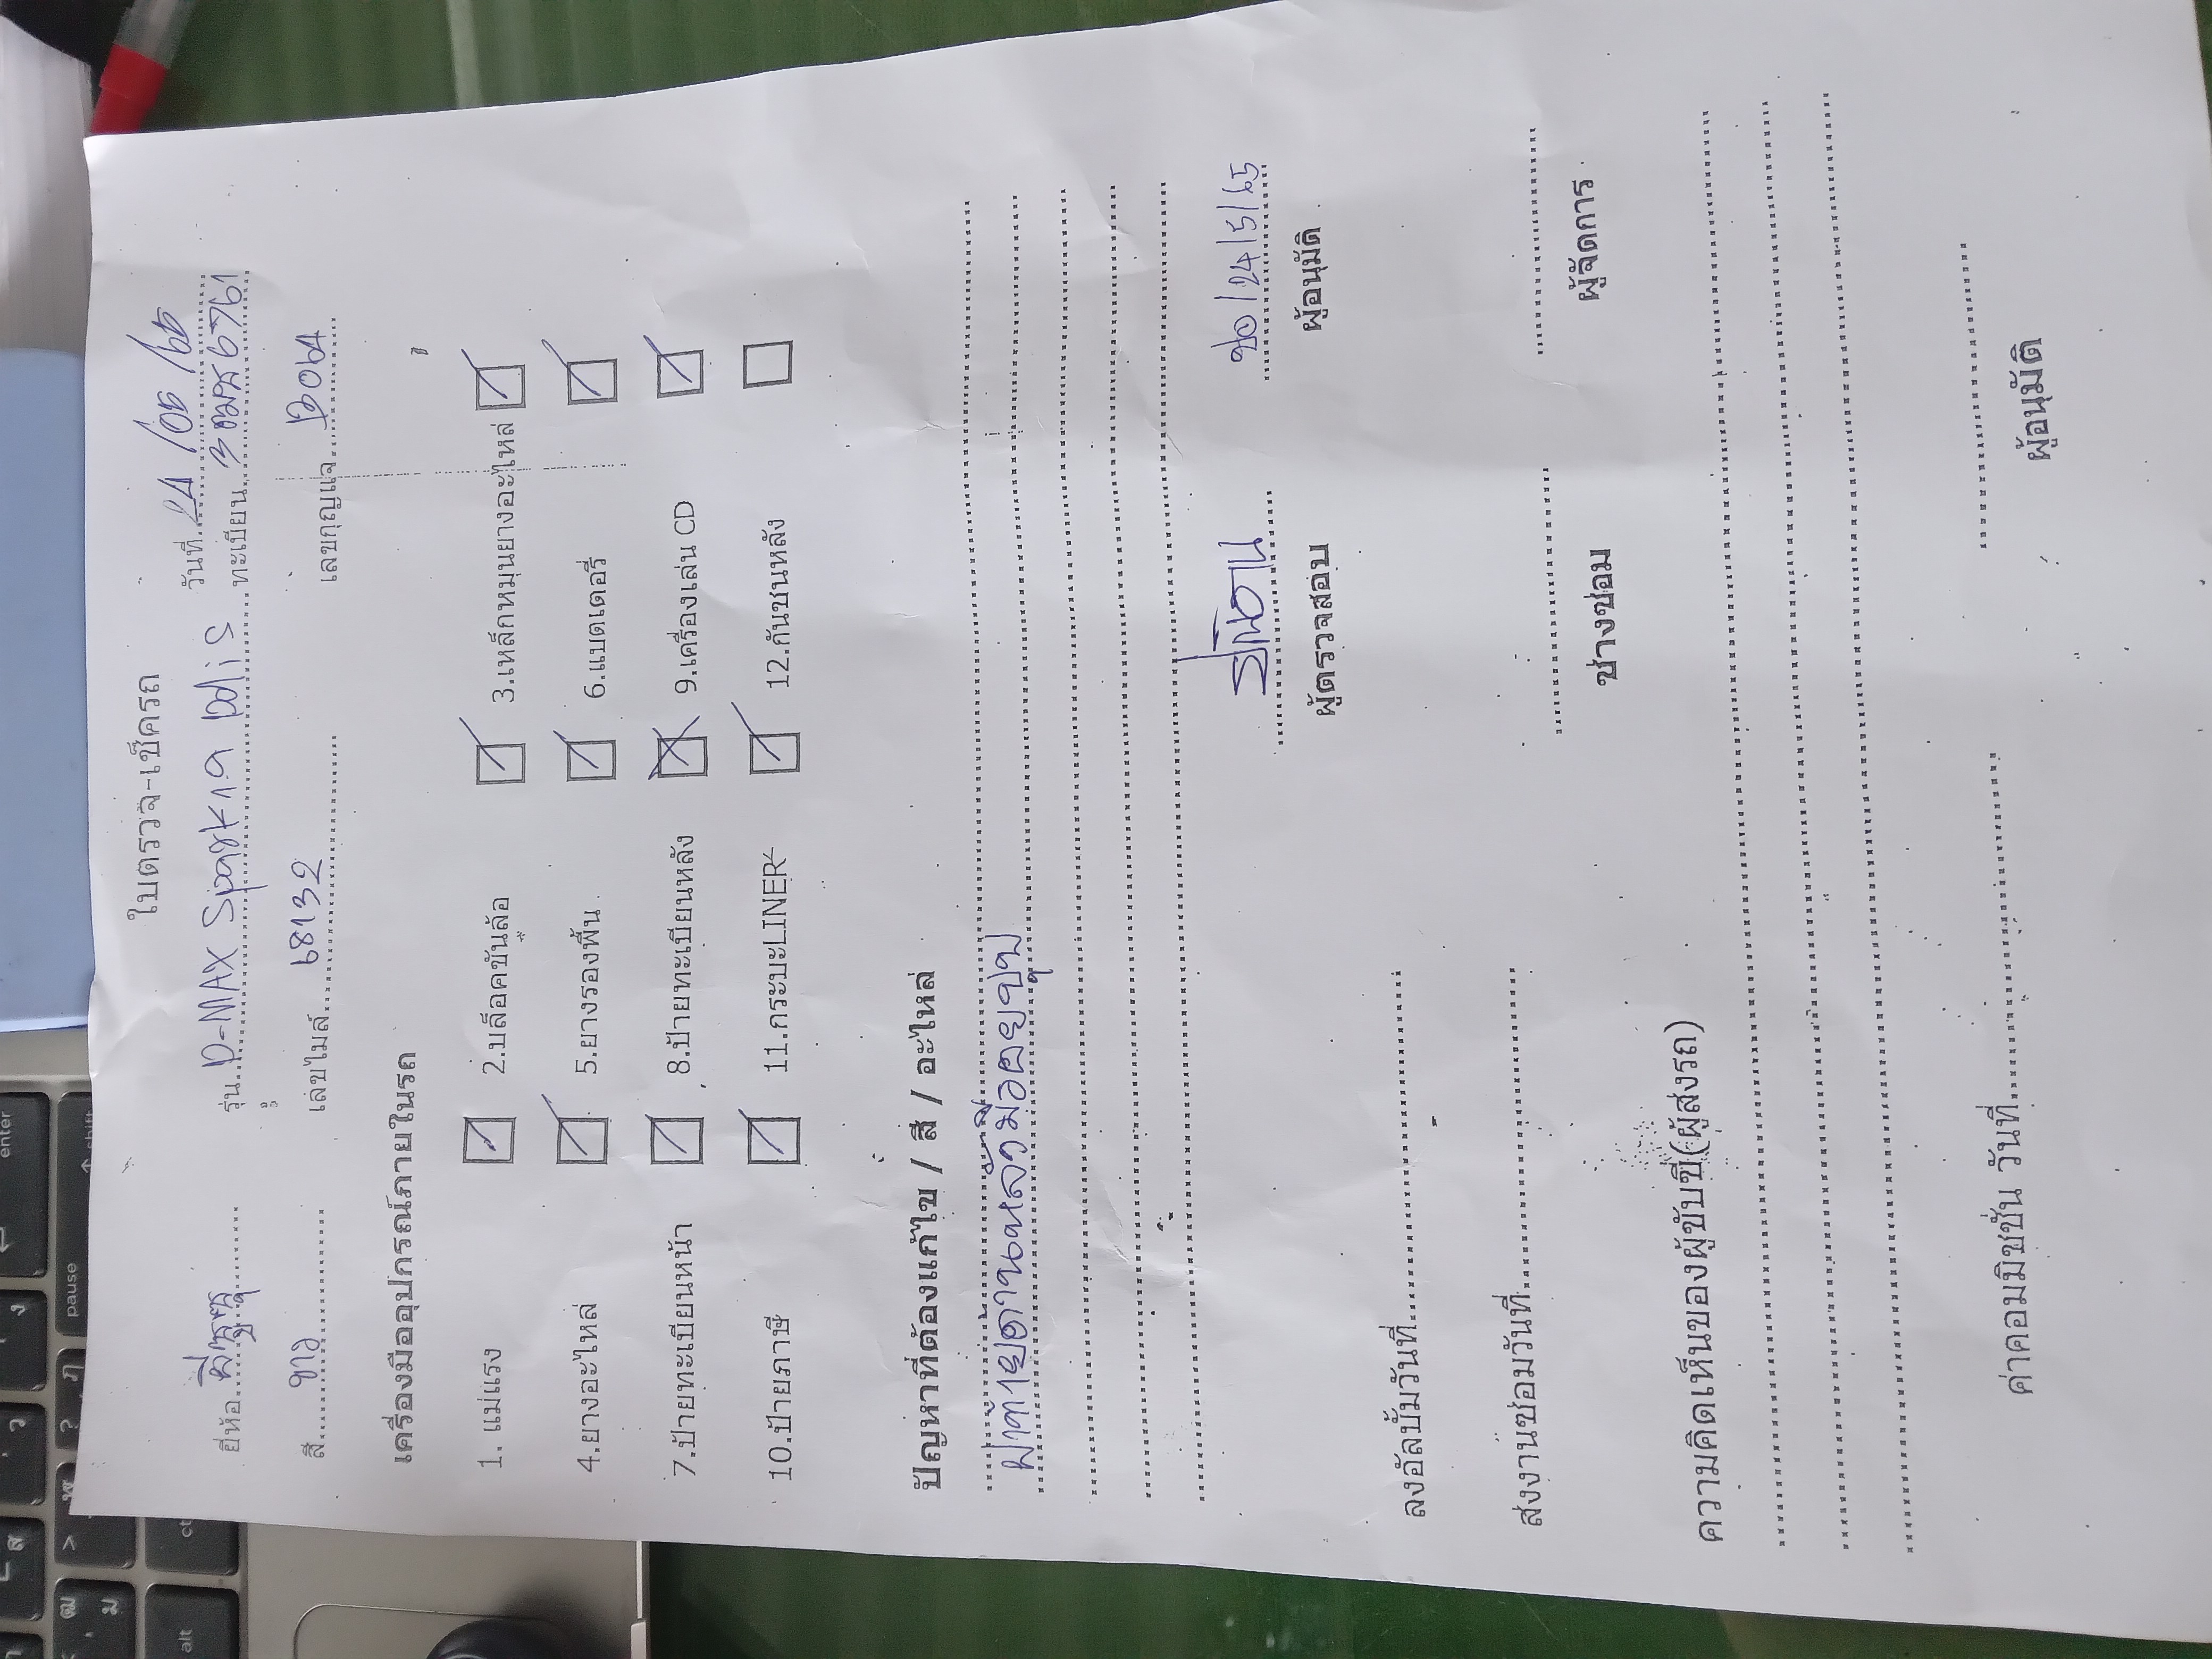 ใบตรวจ-เช็ครถ
วันที่ 24/05/65
ยี่ห้อ อีซูซุ รุ่น D-MAX Spark 1.9 Ddi S ทะเบียน 3ฒฆ6761
สี ขาว เลขไมล์ 68132 เลขกุญแจ D064
เครื่องมืออุปกรณ์ภายในรถ
1. แม่แรง 2.บล็อคขันล้อ 3.เหล็กหมุนยางอะไหล่
4.ยางอะไหล่ 5.ยางรองพื้น 6.แบตเตอรี่
7.ป้ายทะเบียนหน้า 8.ป้ายทะเบียนหลัง 9.เครื่องเล่น CD
10.ป้ายภาษี 11.กระบะLINER 12.กันชนหลัง
ปัญหาที่ต้องแก้ไข / สี / อะไหล่
ฝาท้ายด้านหลังมีรอยบุบ
24/5/65
ผู้ตรวจสอบ ผู้อนุมัติ
ลงอัลบั้มวันที่
ส่งงานซ่อมวันที่
ช่างซ่อม ผู้จัดการ
ความคิดเห็นของผู้ขับขี่(ผู้ส่งรถ)
ค่าคอมมิชชั่น วันที่
ผู้อนุมัติ
enter
shift
pause
ctrl
alt